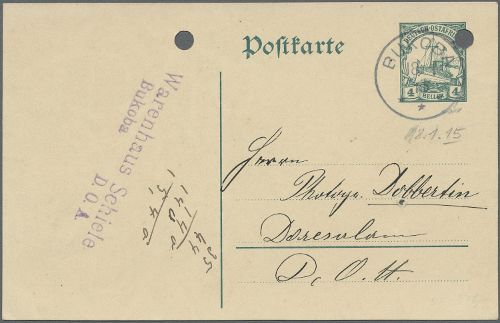 Postkarte
DEUTSCH-OSTAFRIKA
4 HELLER 4
BUKOBA
18
18.1.15
Warenhaus Schiele
Bukoba D.O.A.
Herrn
Photogr. Dobbertin
Daresalam
D. O. A.